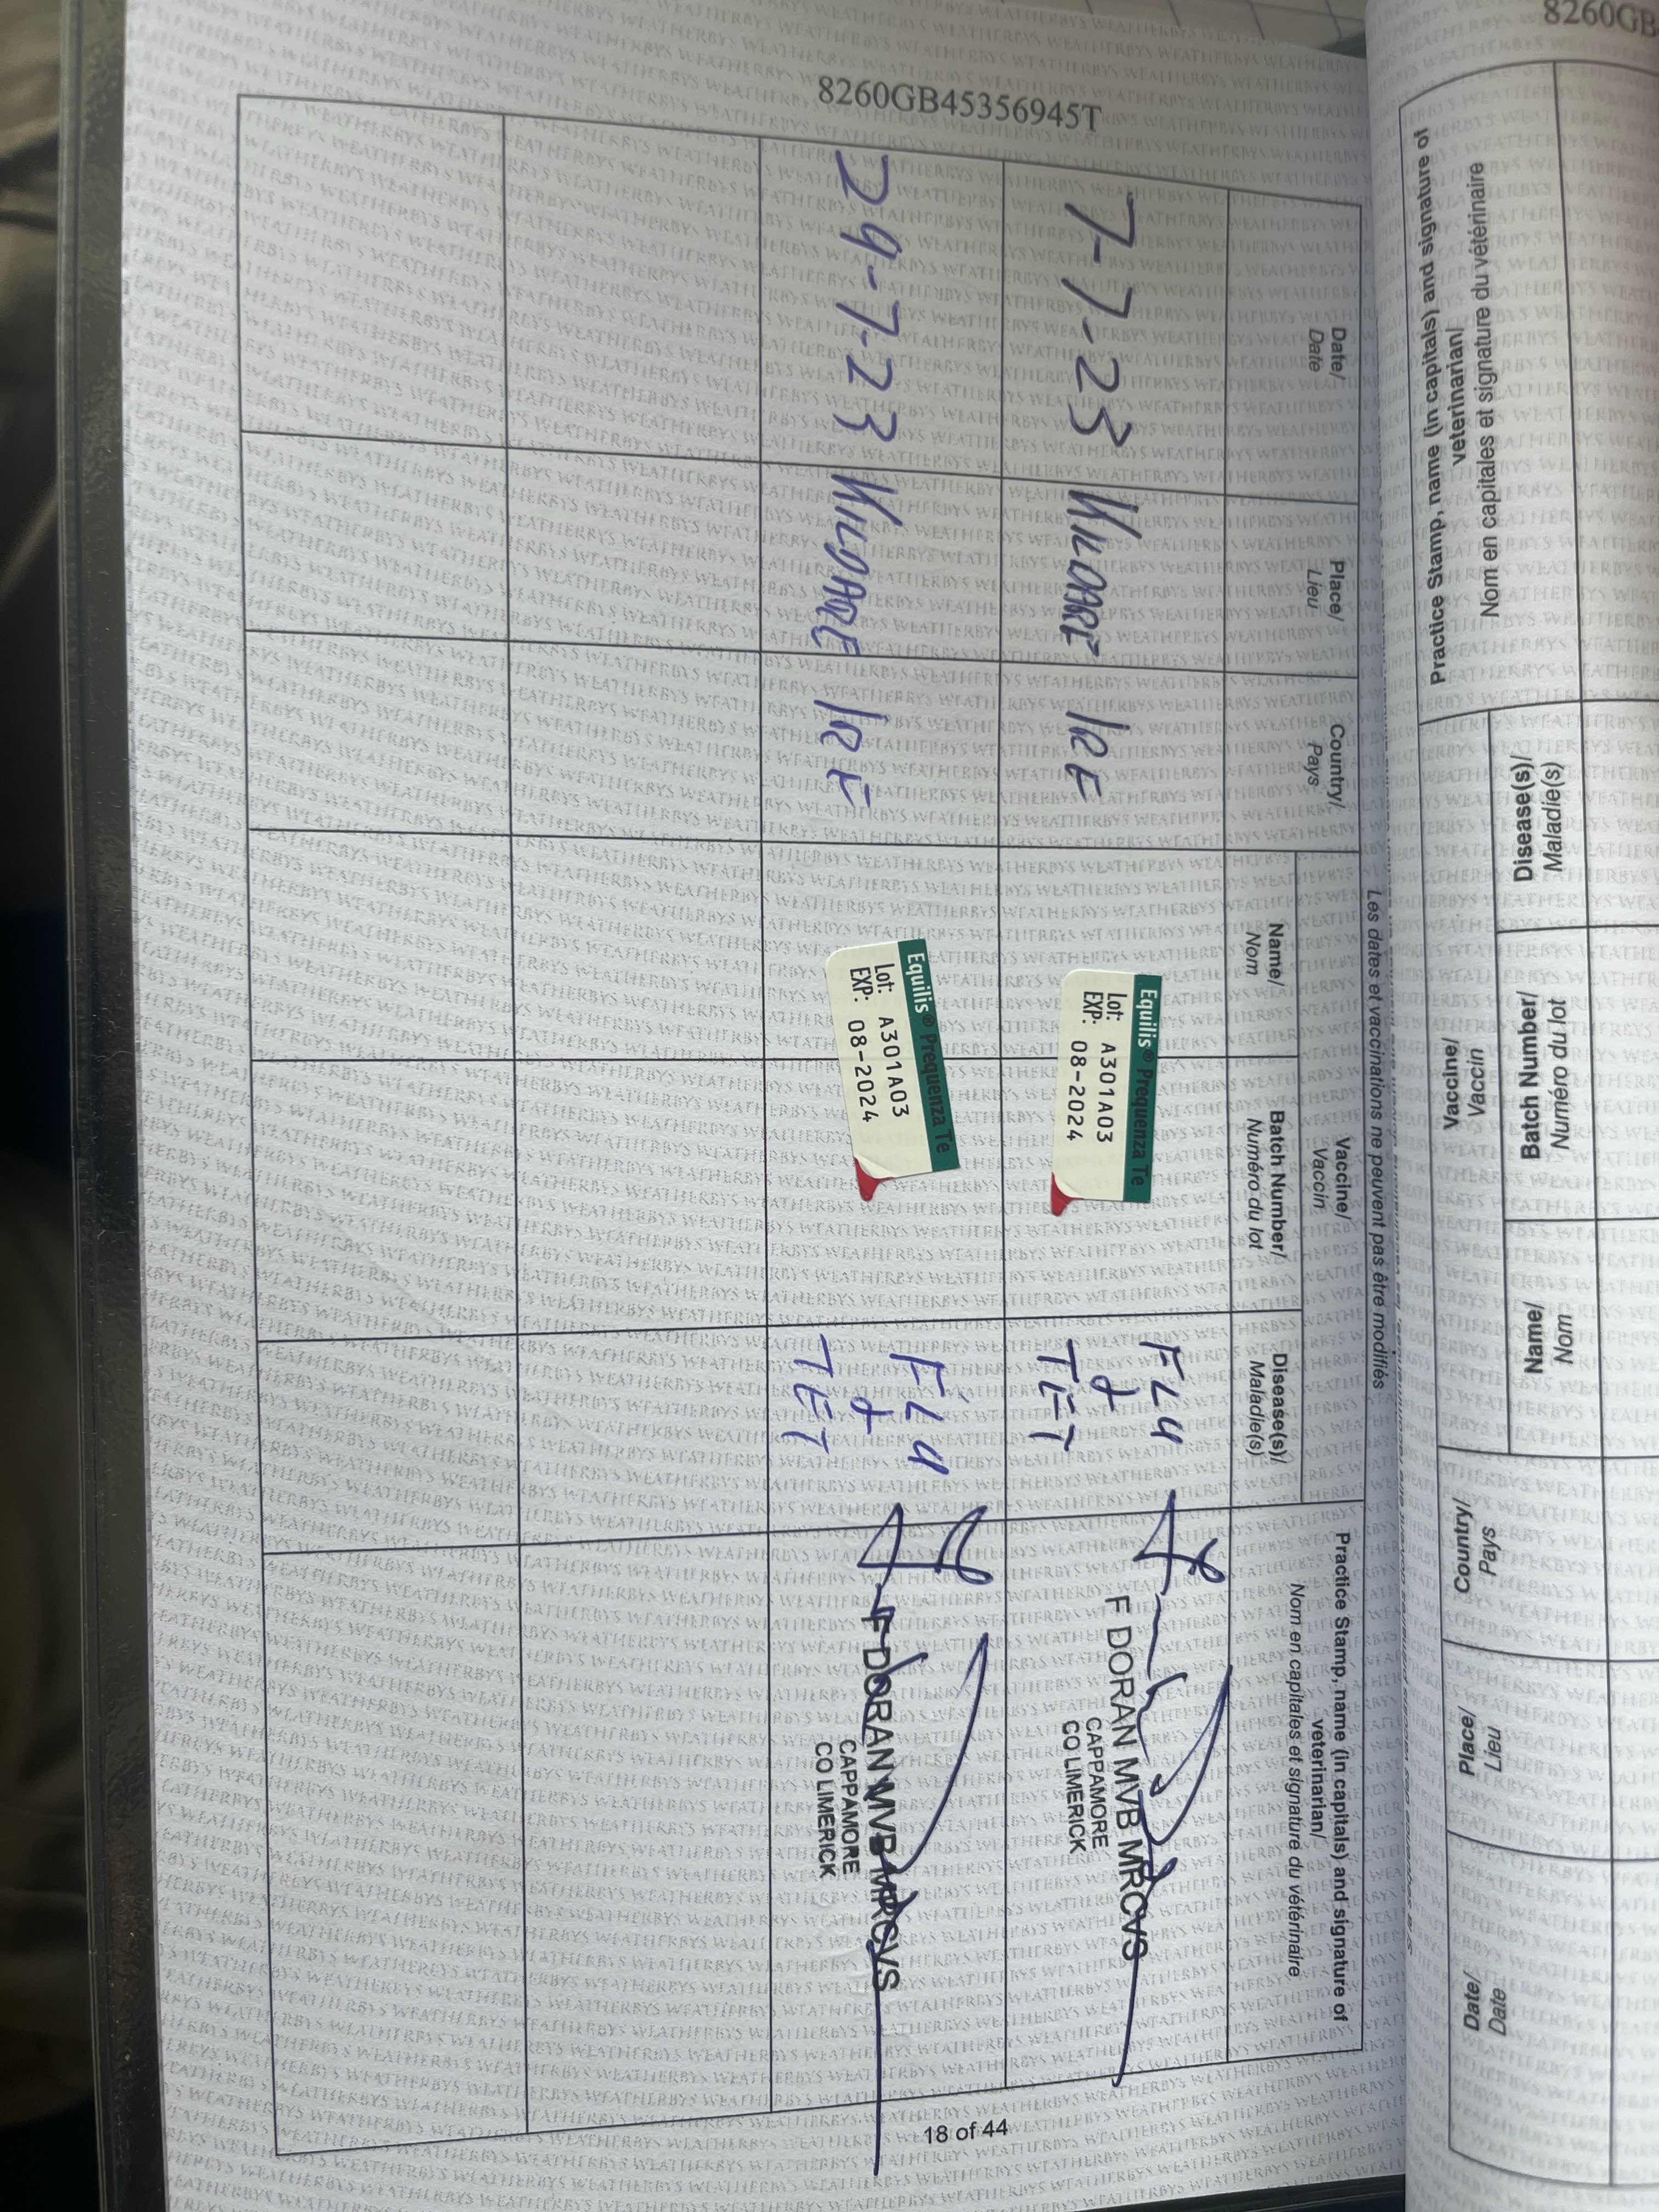 8260GB45356945T
Les dates et vaccinations ne peuvent pas être modifiés
Date/
Date
Place/
Lieu
Country/
Pays
Vaccine/
Vaccin
Name/
Nom
Batch Number/
Numéro du lot
Disease(s)/
Maladie(s)
Practice Stamp, name (in capitals) and signature of
veterinarian/
Nom en capitales et signature du vétérinaire
7-7-23 KILDARE IRE
Equilis® Prequenza Te
Lot: A301A03
EXP: 08-2024
FLU
&
TET
F DORAN MVB MRCVS
CAPPAMORE
CO LIMERICK
29-7-23 KILDARE IRE
Equilis® Prequenza Te
Lot: A301A03
EXP: 08-2024
FLU
&
TET
F DORAN MVB MRCVS
CAPPAMORE
CO LIMERICK
18 of 44
8260GB
Date/
Date
Place/
Lieu
Country/
Pays
Vaccine/
Vaccin
Name/
Nom
Batch Number/
Numéro du lot
Disease(s)/
Maladie(s)
Practice Stamp, name (in capitals) and signature of
veterinarian/
Nom en capitales et signature du vétérinaire